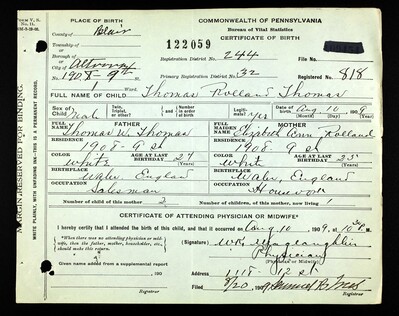 PLACE OF BIRTH
COMMONWEALTH OF PENNSYLVANIA
County of Blair
Bureau of Vital Statistics
CERTIFICATE OF BIRTH
Township of
or
Borough of
or
City of Altoona
122059
Registration District No. 244
File No.
1908 - 9th St
Primary Registration District No. 32
Registered No. 818
FULL NAME OF CHILD Thomas Rolland Thomas
Sex of Child Male
Twin, Triplet, or other?
Legitimate? yes
Date of Birth Aug 10 1909
(Month) (Day) (Year)
FATHER
FULL NAME Thomas W. Thomas
MOTHER
FULL MAIDEN NAME Elizabeth Ann Rolland
RESIDENCE 1908 - 9 St
RESIDENCE 1908 - 9 St
COLOR White
AGE AT LAST BIRTHDAY 24
COLOR White
AGE AT LAST BIRTHDAY 23
BIRTHPLACE Wales, England
BIRTHPLACE Wales, England
OCCUPATION Salesman
OCCUPATION Housework
Number of child of this mother 2
Number of children, of this mother, now living 1
CERTIFICATE OF ATTENDING PHYSICIAN OR MIDWIFE*
I hereby certify that I attended the birth of this child, and that it occurred on Aug 10 1909, at 10
*When there was no attending physician or midwife, then the father, mother, householder, etc., should make this return.
(Signature)
Physician
(Physician or Midwife)
Given name added from a supplemental report 190
Address 1118 - 12 St
Filed 8/20
Registrar
Registrar
MARGIN RESERVED FOR BINDING
WRITE PLAINLY, WITH UNFADING INK—THIS IS A PERMANENT RECORD.